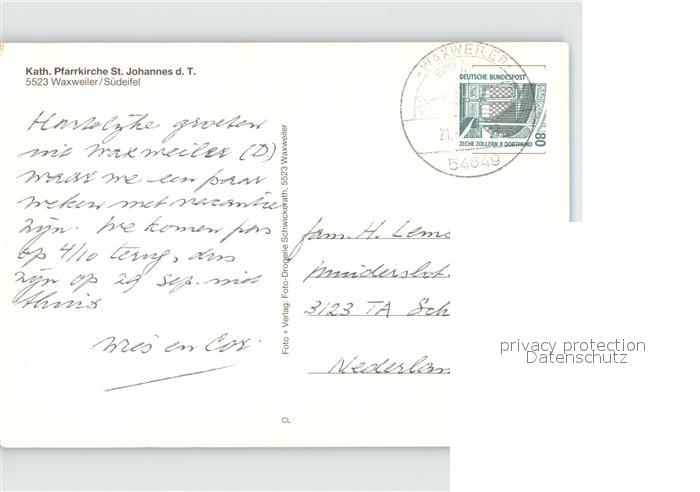 Kath. Pfarrkirche St. Johannes d. T.
5523 Waxweiler/Südeifel
Hartelijke groeten
uit Waxweiler (D)
waar we een paar
weken met vacantie
zijn. We komen pas
op 4/10 terug, dus
zijn op 29 sep. niet
thuis
Wies en Cor.
Foto + Verlag: Foto-Drogerie Schwickerath, 5523 Waxweiler
CL
WAXWEILER
21.
54649
DEUTSCHE BUNDESPOST
80
ZECHE ZOLLERN II DORTMUND
fam. H.
3123 TA Sch
Nederlan
privacy protection
Datenschutz